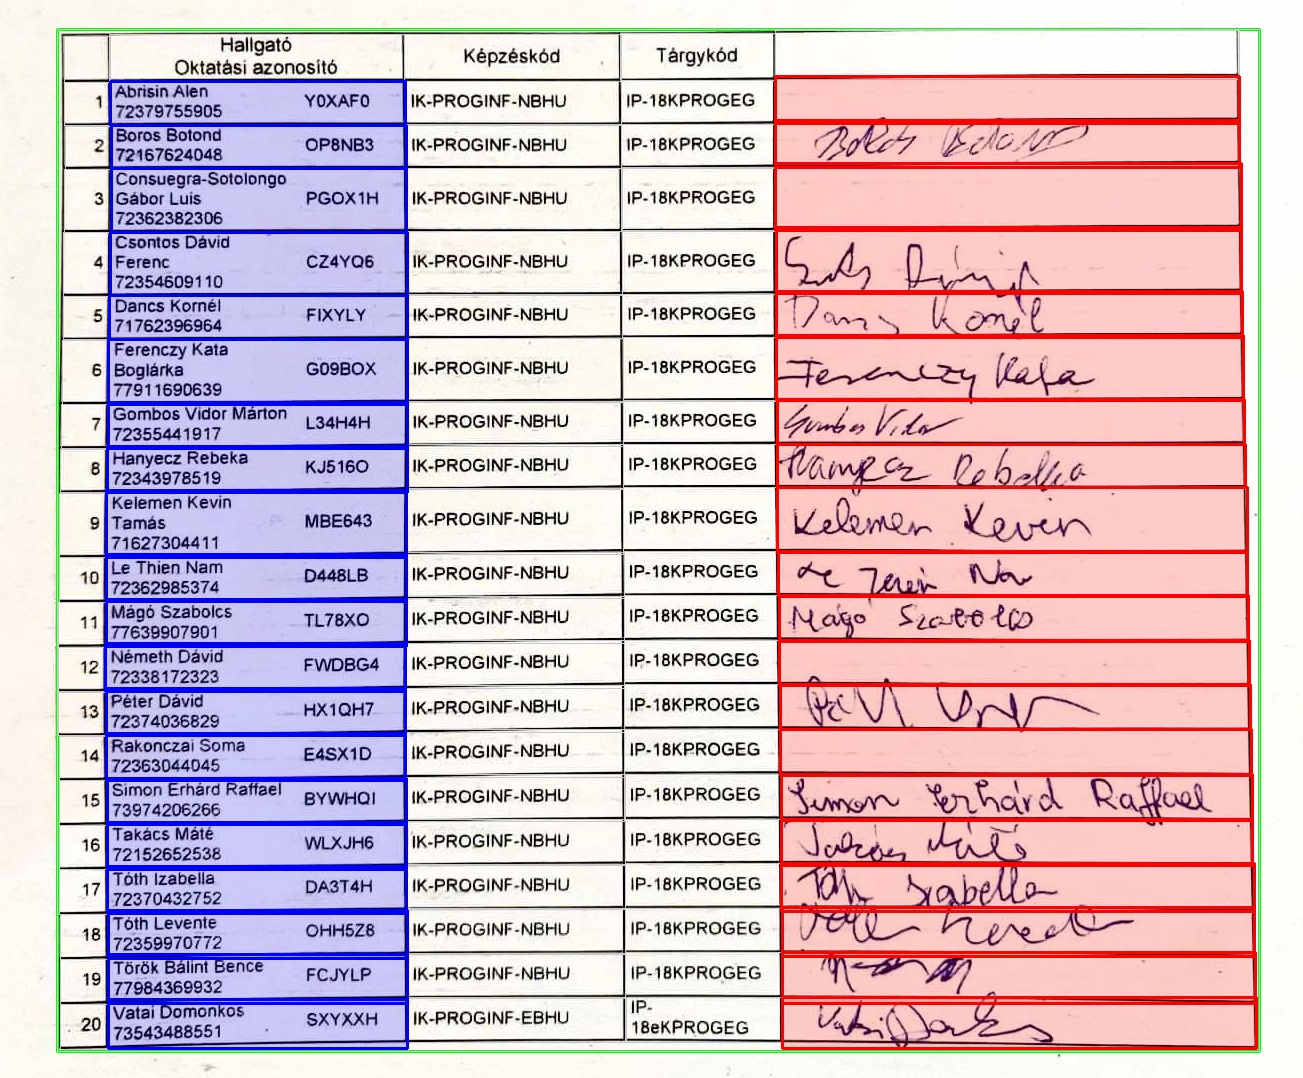 Hallgató
Oktatási azonosító
Képzéskód
Tárgykód
1
Abrisin Alen
72379755905
Y0XAF0
IK-PROGINF-NBHU
IP-18KPROGEG
2
Boros Botond
72167624048
OP8NB3
IK-PROGINF-NBHU
IP-18KPROGEG
Boros Botond
3
Consuegra-Sotolongo
Gábor Luis
72362382306
PGOX1H
IK-PROGINF-NBHU
IP-18KPROGEG
4
Csontos Dávid
Ferenc
72354609110
CZ4YQ6
IK-PROGINF-NBHU
IP-18KPROGEG
5
Dancs Kornél
71762396964
FIXYLY
IK-PROGINF-NBHU
IP-18KPROGEG
Dancs Kornél
6
Ferenczy Kata
Boglárka
77911690639
G09BOX
IK-PROGINF-NBHU
IP-18KPROGEG
Ferenczy Kata
7
Gombos Vidor Márton
72355441917
L34H4H
IK-PROGINF-NBHU
IP-18KPROGEG
Gombos Vidor
8
Hanyecz Rebeka
72343978519
KJ516O
IK-PROGINF-NBHU
IP-18KPROGEG
Hanyecz Rebeka
9
Kelemen Kevin
Tamás
71627304411
MBE643
IK-PROGINF-NBHU
IP-18KPROGEG
Kelemen Kevin
10
Le Thien Nam
72362985374
D448LB
IK-PROGINF-NBHU
IP-18KPROGEG
Le Thien Nam
11
Mágó Szabolcs
77639907901
TL78XO
IK-PROGINF-NBHU
IP-18KPROGEG
Mágó Szabolcs
12
Németh Dávid
72338172323
FWDBG4
IK-PROGINF-NBHU
IP-18KPROGEG
13
Péter Dávid
72374036829
HX1QH7
IK-PROGINF-NBHU
IP-18KPROGEG
14
Rakonczai Soma
72363044045
E4SX1D
IK-PROGINF-NBHU
IP-18KPROGEG
15
Simon Erhárd Raffael
73974206266
BYWHQI
IK-PROGINF-NBHU
IP-18KPROGEG
Simon Erhárd Raffael
16
Takács Máté
72152652538
WLXJH6
IK-PROGINF-NBHU
IP-18KPROGEG
Takács Máté
17
Tóth Izabella
72370432752
DA3T4H
IK-PROGINF-NBHU
IP-18KPROGEG
Tóth Izabella
18
Tóth Levente
72359970772
OHH5Z8
IK-PROGINF-NBHU
IP-18KPROGEG
Tóth Levente
19
Török Bálint Bence
77984369932
FCJYLP
IK-PROGINF-NBHU
IP-18KPROGEG
20
Vatai Domonkos
73543488551
SXYXXH
IK-PROGINF-EBHU
IP-
18eKPROGEG
Vatai Domonkos